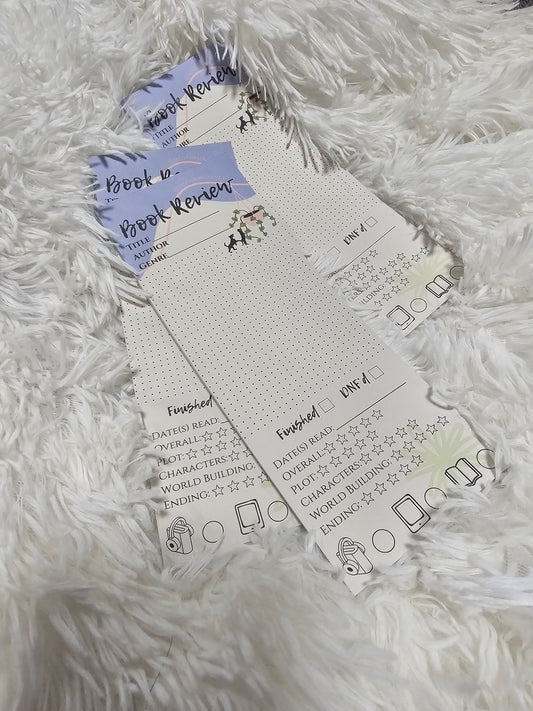 Book Review
TITLE
AUTHOR
GENRE
DNF'd
Book Re
Book Review
TITLE
AUTHOR
GENRE
Finished DNF'd
DATE(S) READ:
OVERALL:
PLOT:
CHARACTERS:
WORLD BUILDING:
ENDING:
Finished
DATE(S) READ:
OVERALL:
PLOT:
CHARACTERS:
WORLD BUILDING:
ENDING: